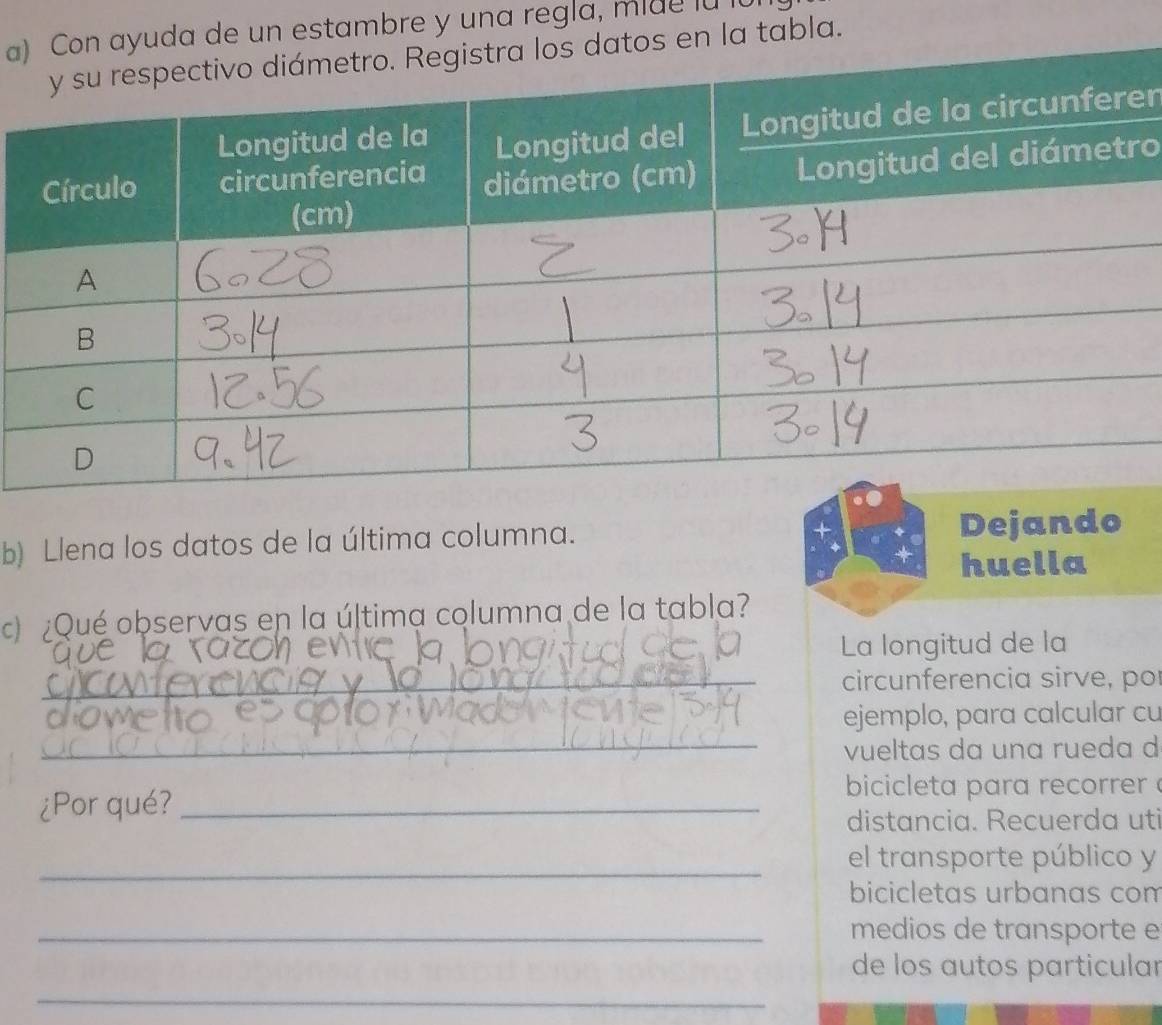 a) Con ayuda de un estambre y una regla, mide
y su respectivo diámetro. Registra los datos en la tabla.
Círculo
Longitud de la
circunferencia
(cm)
Longitud del
diámetro (cm)
Longitud de la circunferen
Longitud del diámetro
A 6.28 2 3.14
B 3.14 1 3.14
C 12.56 4 3.14
D 9.42 3 3.14
b) Llena los datos de la última columna.
c) ¿Qué observas en la última columna de la tabla?
que la razon entre la longitud de la
circunferencia y la longitud del
diametro es aproximadamente 3.14
¿Por qué?
Dejando
huella
La longitud de la
circunferencia sirve, por
ejemplo, para calcular cu
vueltas da una rueda d
bicicleta para recorrer
distancia. Recuerda uti
el transporte público y
bicicletas urbanas com
medios de transporte e
de los autos particular